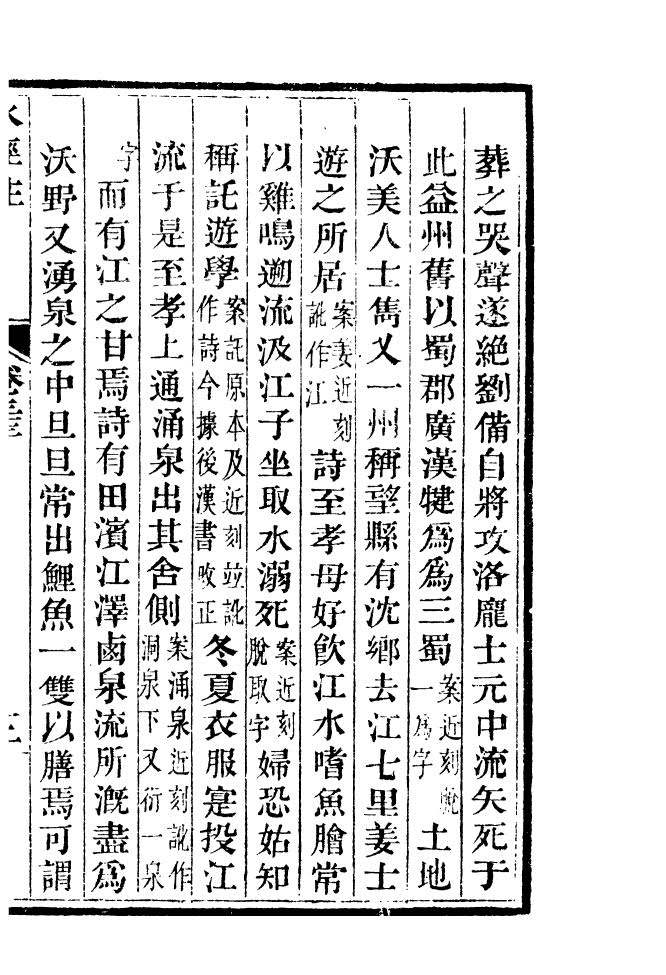 葬之哭聲遂絕劉備自將攻洛龐士元中流矢死于
此益州舊以蜀郡廣漢犍爲爲三蜀案近刻脫一爲字土地
沃美人士雋乂一州稱望縣有沈鄉去江七里姜士
遊之所居案姜近刻訛作江詩至孝母好飮江水嗜魚膾常
以雞鳴遡流汲江子坐取水溺死案近刻脫取字婦恐姑知
稱託遊學案託原本及近刻並訛作詩今據後漢書改正冬夏衣服寔投江
流于是至孝上通涌泉出其舍側案涌泉近刻訛作洞泉下又衍一泉
字而有江之甘焉詩有田濱江澤鹵泉流所漑盡爲
沃野又湧泉之中旦旦常出鯉魚一雙以膳焉可謂
水經注